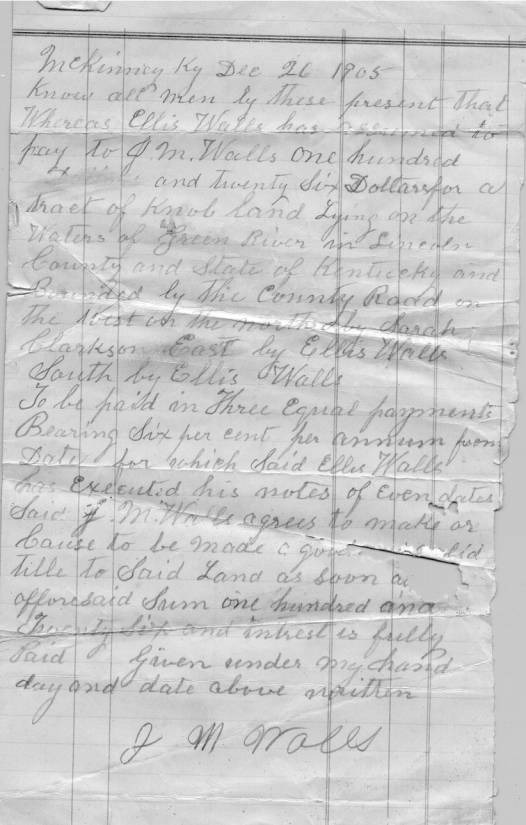 McKinney Ky Dec 26 1905
Know all men by these present that
Whereas Ellis Walls has assumed to
pay to J. M. Walls One hundred
and twenty Six Dollars for a
tract of Knob land Lying on the
Waters of Green River in Lincoln
County and State of Kentucky and
Bounded by the County Road on
the West on the north by Sarah
Clarkson East by Ellis Walls
South by Ellis Walls
To be paid in Three Equal payments
Bearing Six per cent per annum from
Date for which Said Ellis Walls
has Executed his notes of Even dates
Said J. M. Walls agrees to make or
Cause to be made a good
title to Said Land as soon as
afforesaid Sum one hundred and
Twenty Six and intrest is fully
Paid Given under my hand
day and date above written
J M Walls